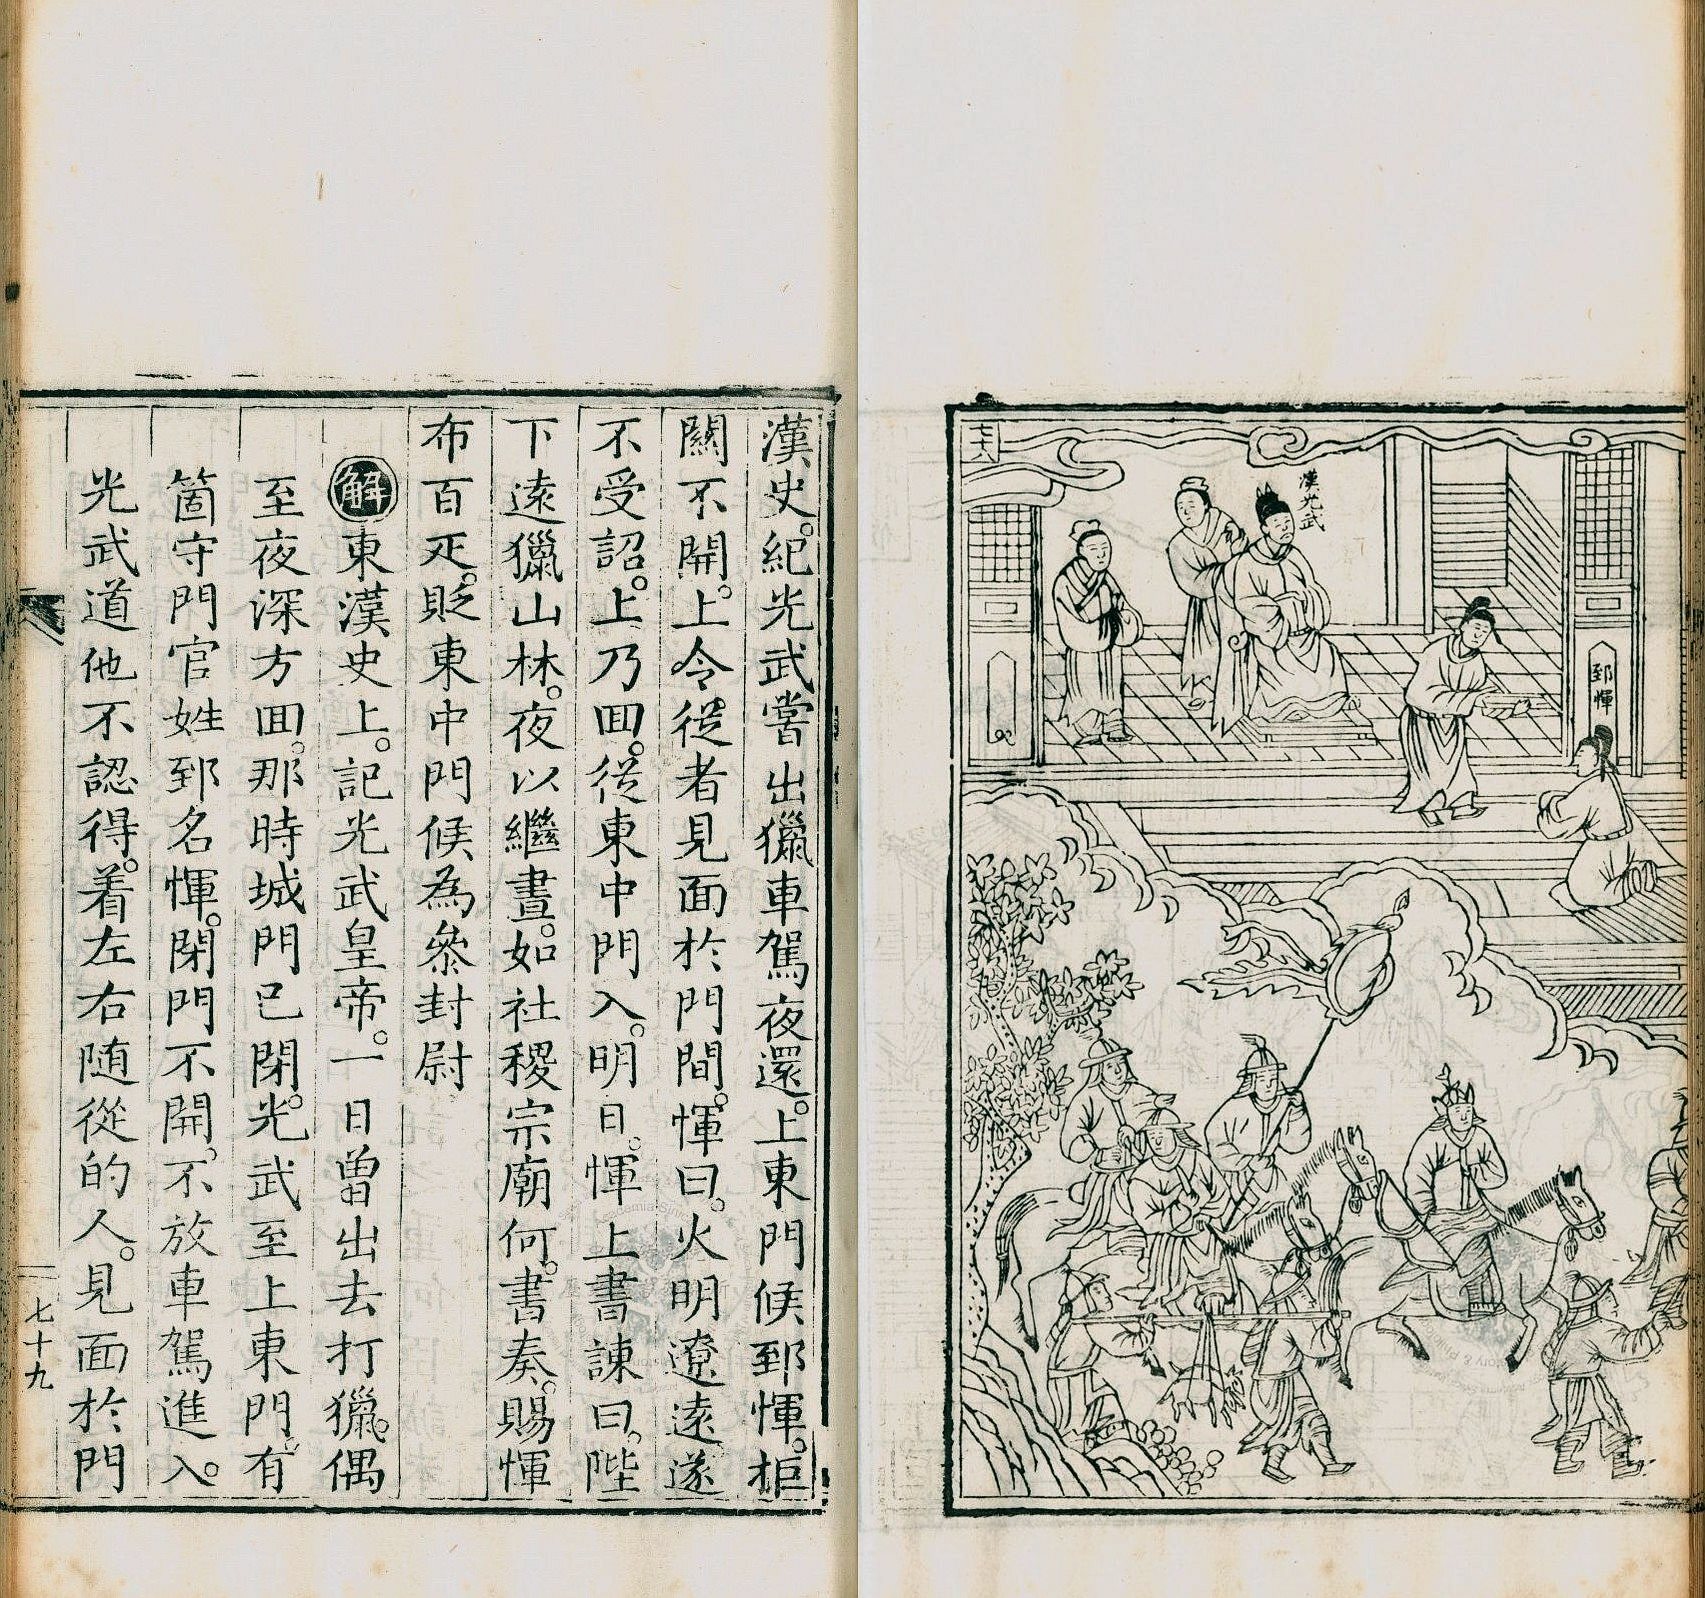 七十八
漢光武
郅惲
漢史。紀光武嘗出獵車駕夜還。上東門候郅惲。拒
關不開。上令從者見面於門間。惲曰。火明遼遠。遂
不受詔。上乃回。從東中門入。明日。惲上書諫曰。陛
下遠獵山林。夜以繼晝。如社稷宗廟何。書奏。賜惲
布百疋。貶東中門候為參封尉
解東漢史上。記光武皇帝。一日曾出去打獵。偶
至夜深方回。那時城門已閉。光武至上東門。有
箇守門官姓郅名惲。閉門不開。不放車駕進入。
光武道他不認得。着左右随從的人。見面於門
七十九